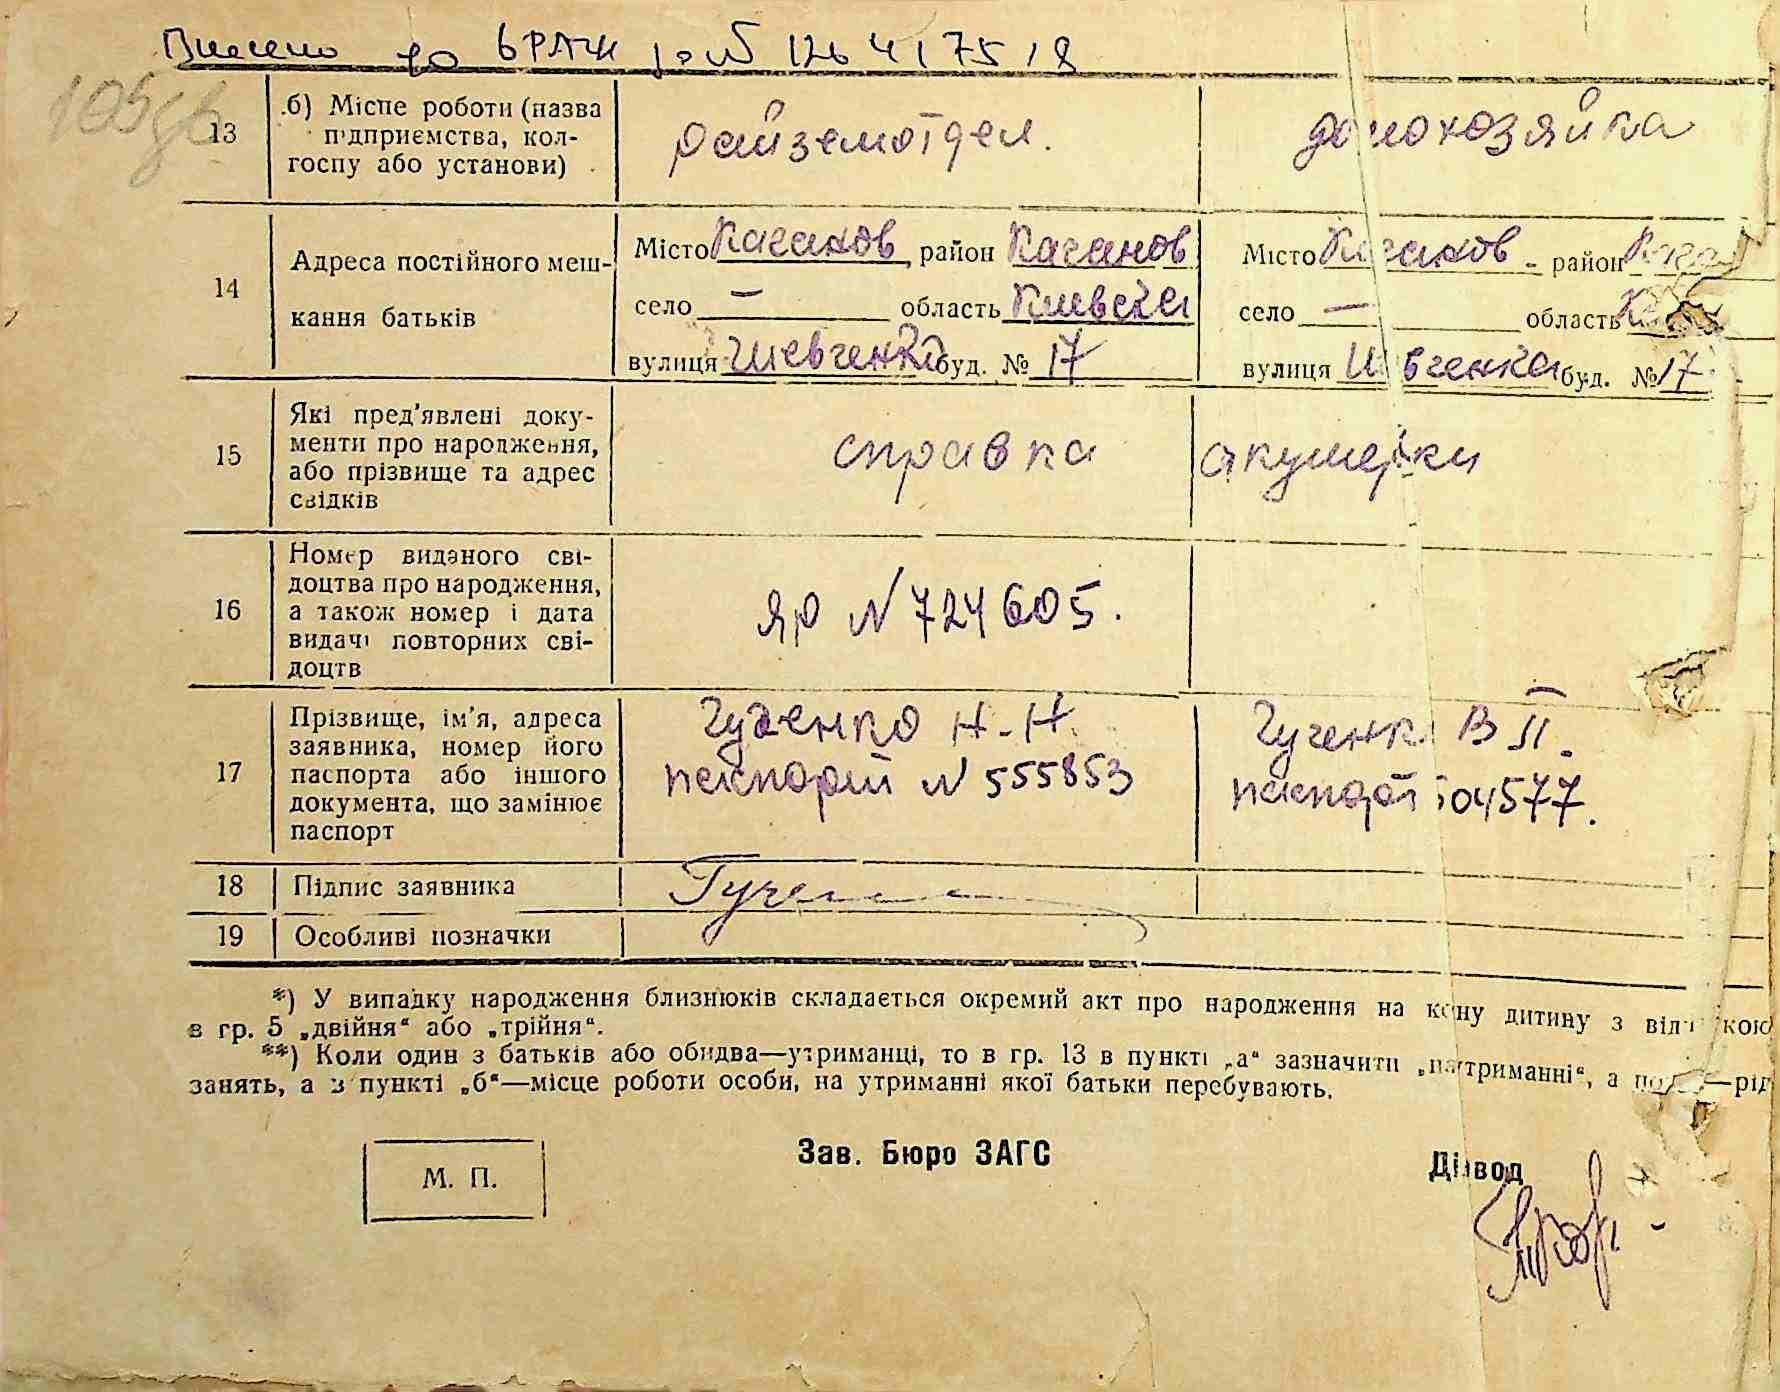 Внесено до
105 зв
13
б) Місце роботи (назва
підприємства, кол-
госпу або установи)
райземотдел.
домохозяйка
14
Адреса постійного меш-
кання батьків
Місто Каганов район Каганов
село — область Киевская
вулиця Шевченко буд. № 17
Місто Каганов район
село — область
вулиця Шевченко буд. № 17
15
Які пред'явлені доку-
менти про народження,
або прізвище та адрес
свідків
справка акушерки
16
Номер виданого сві-
доцтва про народження,
а також номер і дата
видачі повторних сві-
доцтв
ЯР № 724605.
17
Прізвище, ім'я, адреса
заявника, номер його
паспорта або іншого
документа, що замінює
паспорт
Гученко Н. Н.
паспорт № 555853
Гученк В П.
паспорт 04577.
18
Підпис заявника
19
Особливі позначки
*) У випадку народження близнюків складається окремий акт про народження на кожну дитину з відміткою
в гр. 5 „двійня“ або „трійня“.
**) Коли один з батьків або обидва—утриманці, то в гр. 13 в пункті „а“ зазначити „на утриманні“, а —рід
занять, а в пункті „б“—місце роботи особи, на утриманні якої батьки перебувають.
М. П.
Зав. Бюро ЗАГС
Діловод